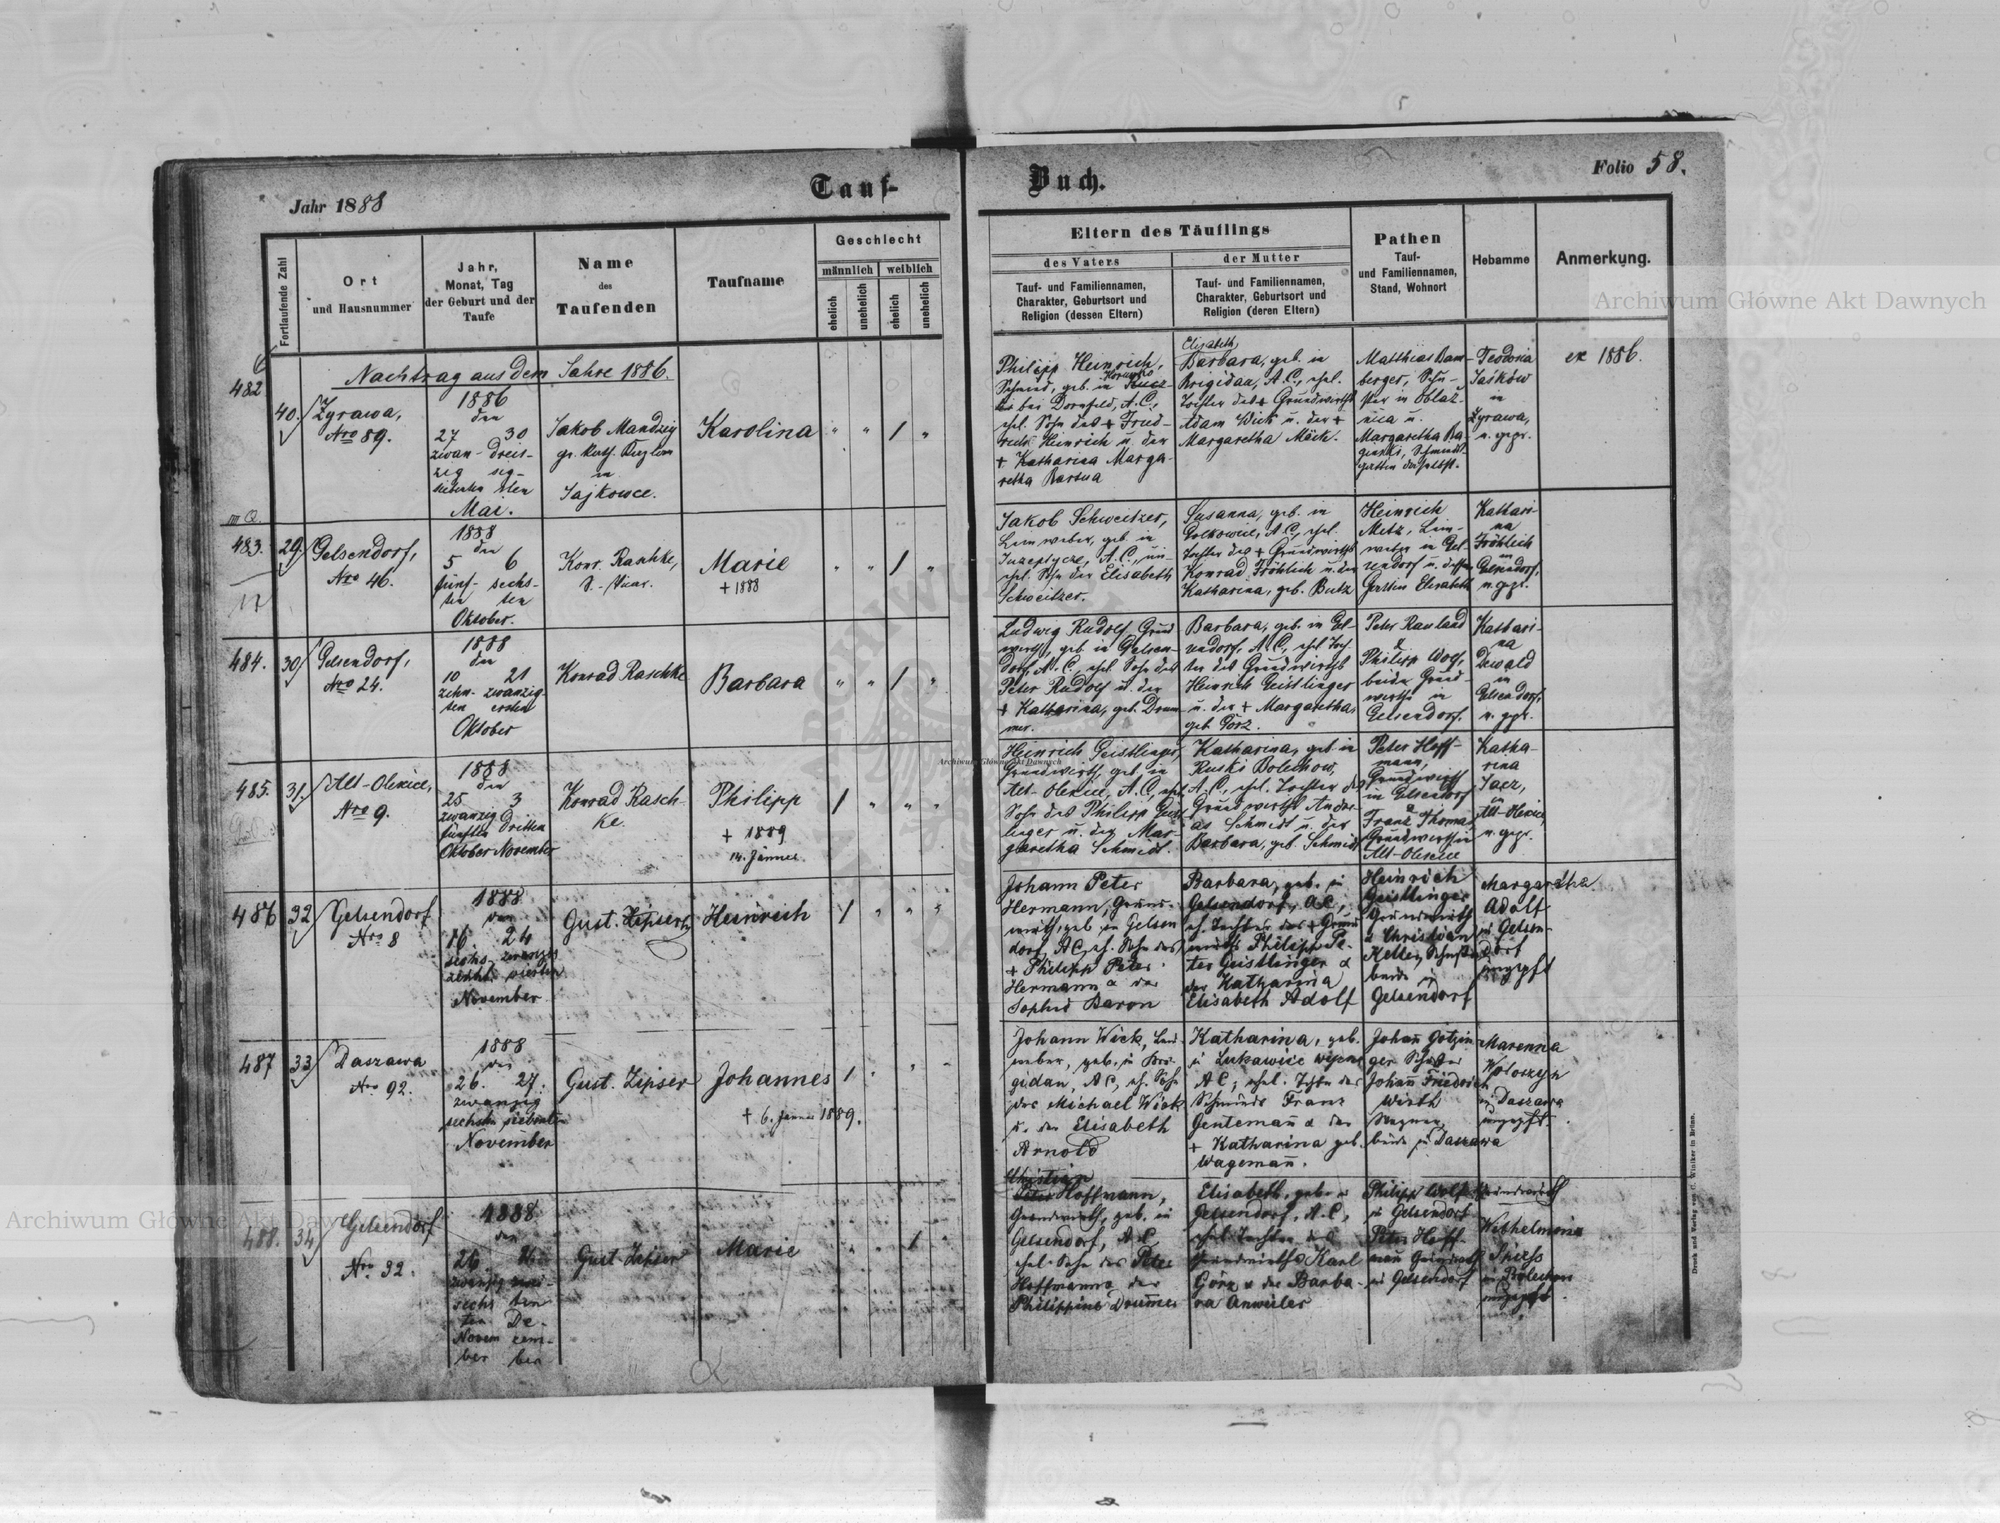 Tauf-
Buch.
Folio 58.
Jahr 1888
Fortlaufende Zahl
Ort
und Hausnummer
Jahr,
Monat, Tag
der Geburt und der
Taufe
Name
des
Taufenden
Taufname
Geschlecht
männlich
weiblich
ehelich
unehelich
ehelich
unehelich
Eltern des Täuflings
des Vaters
der Mutter
Tauf- und Familiennamen,
Charakter, Geburtsort und
Religion (dessen Eltern)
Tauf- und Familiennamen,
Charakter, Geburtsort und
Religion (deren Eltern)
Pathen
Tauf-
und Familiennamen,
Stand, Wohnort
Hebamme
Anmerkung.
Archiwum Główne Akt Dawnych
Nachtrag aus dem Jahre 1886.
482
40.
Zyrawa,
Nro 89.
1886
den
27 30
zwan- dreis-
zig sig-
siebenten sten
Mai.
Jakob Mandzig
in
Jajkowce.
Karolina
" " / "
Philipp Heinrich,
Schmied, geb. in
bei Dornfeld, A.C.,
ehel. Sohn des + Fried-
rich Heinrich u. der
+ Katharina Marga-
retha Bartua
Elisabeth
Barbara, geb. in
Brigidau, A.C., ehel.
Tochter des + Grundwirths
Adam Wick u. der +
Margaretha Mäck.
Matthias Bam-
berger, Schu-
ster in Oblaz-
nica u.
Margaretha Ba-
ginski, Schmieds-
gattin daselbst.
Teodoria
Jaśków
in
Zyrawa,
u. gepr.
ex 1886.
483.
29.
Gelsendorf,
Nro 46.
1888
den
5 6
fünf- sechs-
ten ten
Oktober.
Konr. Raschke,
P.-Vicar.
Marie
+ 1888
" " / "
Jakob Schweitzer,
Leinweber, geb. in
Juzeptycze, A.C., un-
ehel. Sohn der Elisabeth
Schweitzer.
Susanna, geb. in
Golkowice, A.C., ehel.
Tochter des + Grundwirths
Konrad Fröhlich u. der
Katharina, geb. Butz
Heinrich
Metz, Lein-
weber in Gel-
sendorf u. dessen
Gattin Elisabeth
Kathari-
na
Fröhlich
in
Gelsendorf,
u. gepr.
484.
30
Gelsendorf,
Nro 24.
1888
den
10 21
zehn- zwanzig-
ten ersten
Oktober
Konrad Raschke
Barbara
" " / "
Ludwig Rudolf, Grund
wirth, geb. in Gelsen-
dorf, A.C., ehel. Sohn des
Peter Rudolf u. der
+ Katharina, geb. Drum
mer.
Barbara, geb. in Gel-
sendorf, A.C., ehel. Toch-
ter des Grundwirths
Heinrich Geistlinger
u. der + Margaretha,
geb. Görz.
Peter Rauland
&
Philipp Wolf,
beide Grund-
wirthe in
Gelsendorf.
Kathari-
na
Dewald
in
Gelsendorf,
u. gepr.
485.
31.
Alt-Olexice,
Nro 9.
1888
den
25 3
zwanzig dritten
fünften
Oktober November
Konrad Rasch-
ke.
Philipp
+ 1889
14. Jänner.
/ " " "
Heinrich Geistlinger,
Grundwirth, geb. in
Alt-Olexice, A.C., ehel.
Sohn des Philipp Geist-
linger u. der Mar-
garetha Schmidt.
Katharina, geb. in
Ruski Bolechow,
A.C., ehel. Tochter des
Grundwirths Andre-
as Schmidt u. der
Barbara, geb. Schmidt
Peter Hoff-
mann,
Grundwirth
in Gelsendorf
&
Franz Thomas
Grundwirth in
Alt-Olexice
Katha-
rina
Jacz,
in
Alt-Olexice,
u. gepr.
Archiwum Główne Akt Dawnych
486
32
Gelsendorf
Nro 8
1888
den
16. 24
sechs- zwanzig
zehnt. vierten
November
Gust. Zipser
Heinrich
/ " " "
Johann Peter
Hermann, Grund-
wirth, geb. in Gelsen
dorf, AC, eh. Sohn des
+ Philipp Peter
Hermann & der
Sophie Baron
Barbara, geb. in
Gelsendorf, AC,
eh. Tochter des + Grund
wirths Philipp Pe-
ter Geistlinger &
der Katharina
Elisabeth Adolf
Heinrich
Geistlinger
Grundwirth
& Christian
Keller, Schuster
beide in
Gelsendorf
Margaretha
Adolf
in Gelsen-
dorf
ungepr
487
33
Daszawa
Nro 92.
1888
den
26. 27.
zwanzig
sechsten siebenten
November
Gust. Zipser
Johannes
+ 6. Jänner 1889.
/ " " "
Johann Wick, Lein
weber, geb. in Bri-
gidau, AC, eh. Sohn
des Michael Wick
u. der Elisabeth
Arnold
Katharina, geb.
in Lukawice wyżne
AC, ehel. Tochter des
Schmieds Franz
Gentemañ & der
+ Katharina geb.
Wagemañ.
Johañ Götzin
ger
Johañ Friedrich
Wirth
Wagner,
beide in Daszawa
Marenna
Wołoszyn
in Daszawa
ungepft.
488.
34
Gelsendorf
Nro. 32.
1888
den
26.
zwanzig
sechs ten
ten De-
Novem cem-
ber ber
Gust. Zipser
Marie
" " / "
Christian
Peter Hoffmann,
Grundwirth, geb. in
Gelsendorf, A.C.,
ehel. Sohn des Peter
Hoffmann & der
Philippine Drumer
Elisabeth, geb. in
Gelsendorf, A.C.,
ehel. Tochter des
Grundwirths Karl
Görz & der Barba-
ra Anweiler
Philipp Wolf Grundwirth
in Gelsendorf
Peter Hoff-
man Grundwirth
in Gelsendorf
Wilhelmine
Spiess
in Bolechow
ungepft.
Archiwum Główne Akt Dawnych